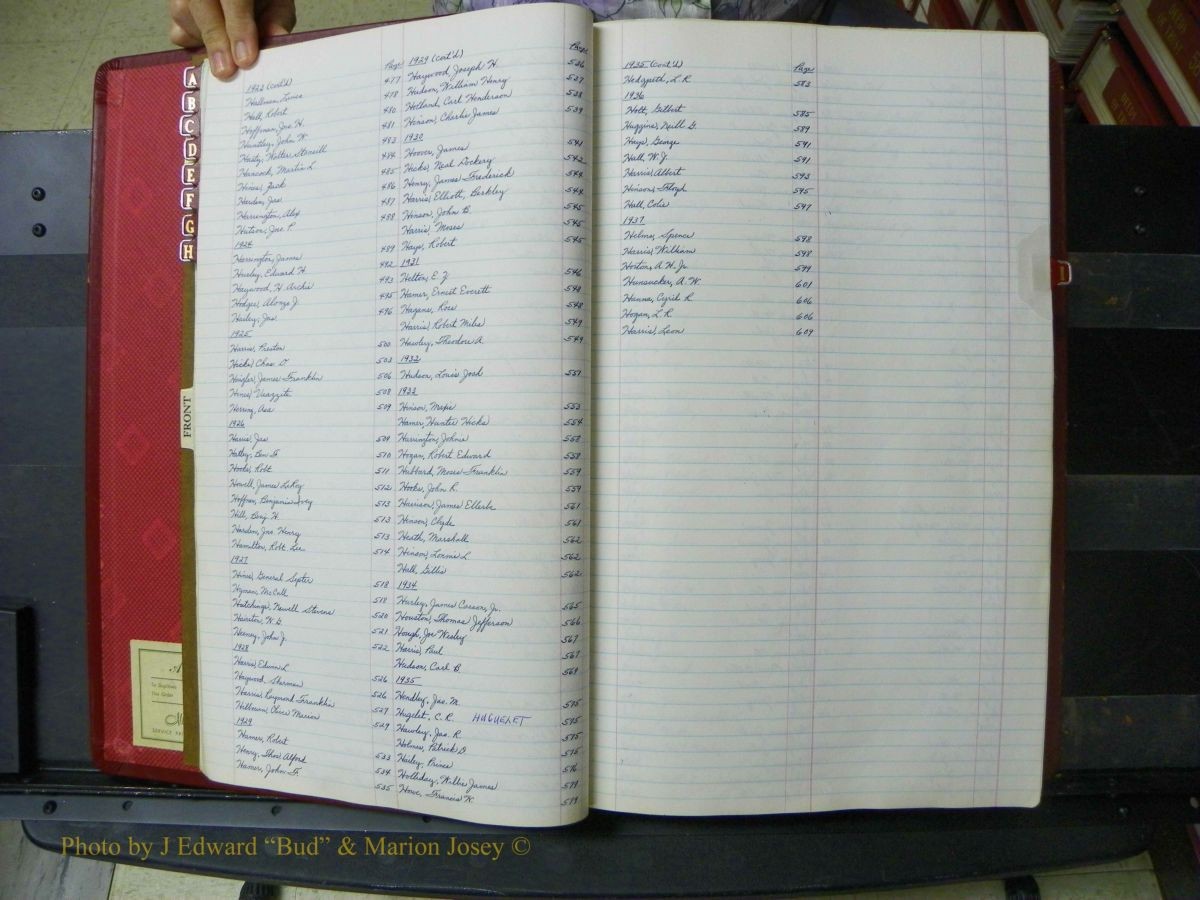 A
B
C
D
E
F
G
H
FRONT
1923 (cont'd)
Hallman, Louis
Hall, Robert 477
Hoffman, Jno. H. 478
Huntley, John W. 480
Hasty, Walter Stancill 481
Hancock, Martin L. 483
Hines, Jack 484
Harden, Jas. 485
Harrington, Alex 486
Hutson, Jos. P. 487
1924
Harrington, James 489
Hursey, Edward H. 492
Haywood, H. Archie 493
Hodges, Alonzo J. 495
Hailey, Jas. 496
1925
Harris, Preston 500
Hicks, Chas. D. 503
Haigler, James Franklin 506
Hines, 508
Herring, Asa 509
1926
Harris, Jas. 509
Hatley, Ben F. 510
Hooks, Robt. 511
Howell, James LeRoy 512
Hoffner, Benjamin Ivey 513
Hill, Benj. H. 513
Harden, Jno. Henry 513
Hamilton, Robt. Lee 514
1927
Hines, General Septer 518
Hyman, McCall 518
Hutchings, Newell Stevens 520
Hairston, W. G. 521
Heeney, John J. 522
1928
Harris, Edwin L. 526
Haywood, Sherman 526
Harris, Raymond Franklin 527
Hilliman, Oliver Marion 529
1929
Hamer, Robert 533
Henry, Thos. Alford 534
Hamer, John F. 535
Page
1929 (cont'd) Page
Haywood, Joseph H. 536
Hudson, William Henry 537
Holland, Carl Henderson 538
Henson, Charlie James 539
1930
Hoover, James 541
Hicks, Neal Dockery 542
Henry, James Frederick 544
Harris, Elliott, Berkley 544
Henson, John B. 545
Harris, Moses 545
Hays, Robert 545
1931
Helton, E. Z. 546
Hamer, Ernest Everett 548
Hagans, Rosa 548
Harris, Robert Miles 549
Hawley, Theodore A. 549
1932
Hudson, Louis Josh 551
1933
Hinson, Maxie 553
Hamer, Hunter Hicks 554
Harrington, Johnie 558
Hogan, Robert Edward 558
Hubbard, Moses Franklin 559
Hooks, John R. 559
Harrison, James Ellerbe 561
Henson, Clyde 561
Heath, Marshall 562
Hinson, Lonnie L. 562
Hall, Gillis 562
1934
Hurley, James Carson, Jr. 565
Houston, Thomas Jefferson 566
Hough, Joe Wesley 567
Harris, Paul 567
Hudson, Carl B. 569
1935
Hendley, Jas. M. 575
Hugelet, C. R. HUGUELET 575
Hawley, Jas. R. 575
Holmes, Patrick D. 575
Hailey, Prince 576
Holliday, Willis James 579
Howe, Francis K. 579
1935 (Cont'd) Page
Hedgpeth, L. R. 583
1936
Holt, Gilbert 585
Huggins, Neill G. 589
Hays, George 591
Hall, W. J. 591
Harris, Albert 593
Hinson, Floyd 595
Hall, Colie 597
1937
Helms, Spence 598
Harris, William 598
Horton, A. H. Jr. 599
Hunsucker, A. W. 601
Hanna, Cyril R. 606
Hogan, L. R. 606
Harris, Leon 609
SERVICE
Photo by J Edward “Bud” & Marion Josey ©